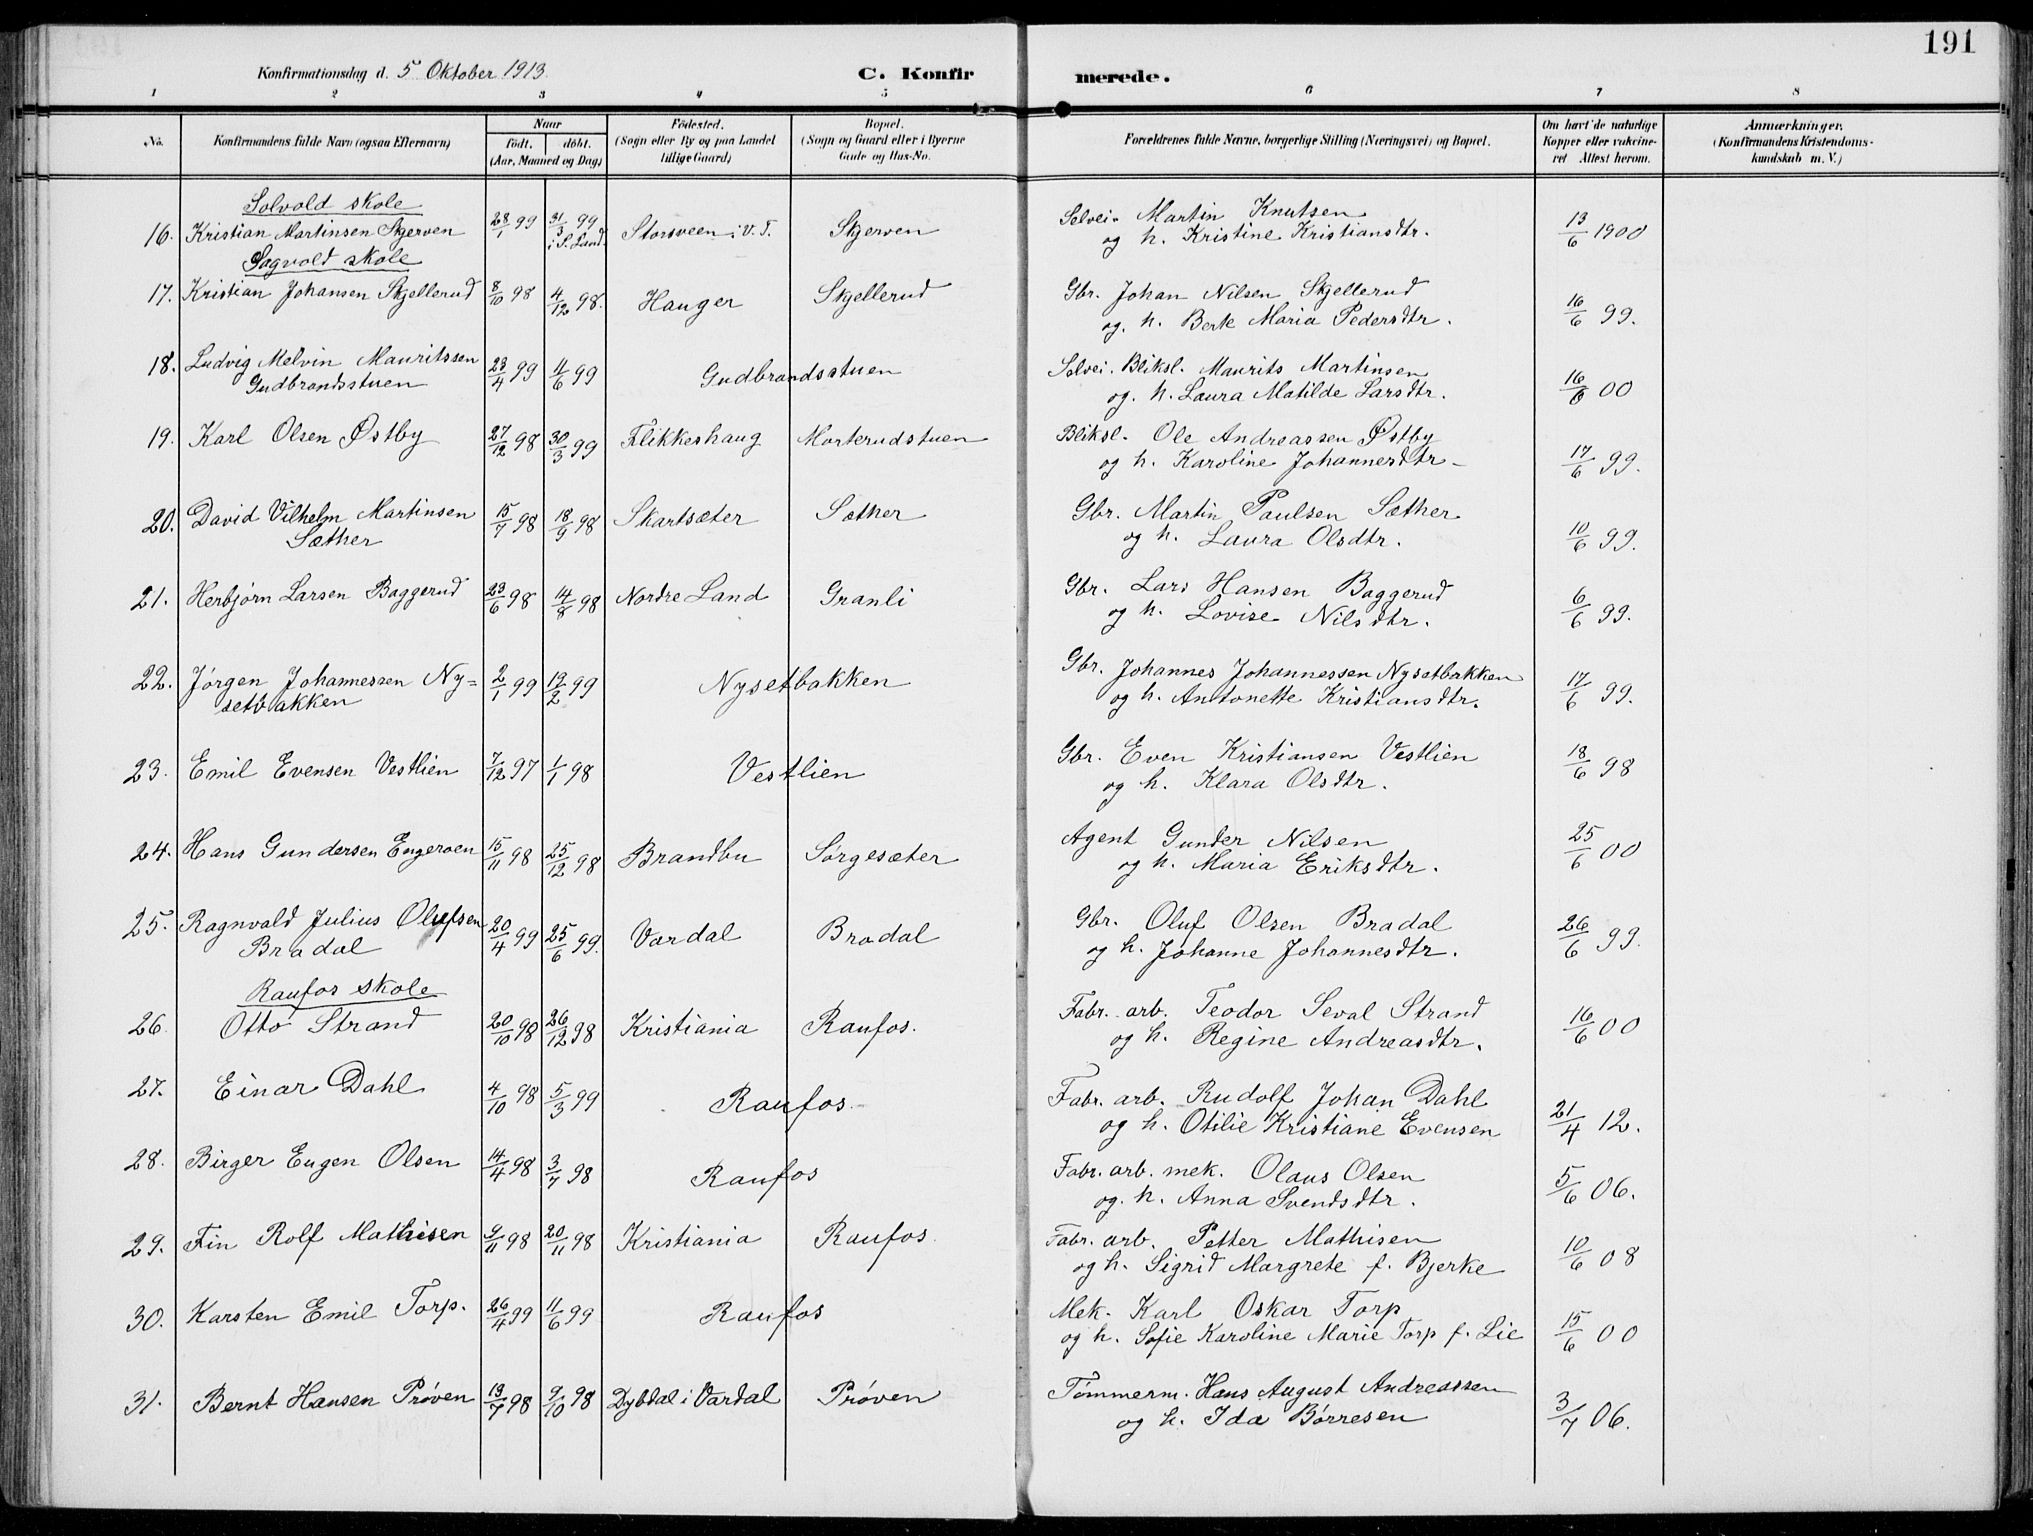 191
Konfirmationsdag d. 5 Oktober 1913.
C. Konfirmerede.
1 2 3 4 5 6 7 8
No. | Konfirmandens fulde Navn (ogsaa Efternavn) | Naar födt. döbt. (Aar, Maaned og Dag) | Födested. (Sogn eller By og paa Landet tillige Gaard) | Bopæl. (Sogn og Gaard eller i Byerne Gade og Hus-No. | Forældrenes fulde Navne, borgerlige Stilling (Næringsvei) og Bopæl. | Om havt de naturlige Kopper eller vakcineret Attest herom. | Anmærkninger. (Konfirmandens Kristendomskundskab m. V.)
Solvold skole
16. Kristian Martinsen Skjerven | 28/1 99 | 31/3 99 i S. Land. | Storsveen i V. T. | Skjerven | Selvei. Martin Knutsen
og h. Kristine Kristiansdtr. | 13/6 1900
Sagvold skole
17. Kristian Johansen Skjellerud | 8/10 98 | 4/12 98. | Hauger | Skjellerud | Gbr. Johan Nilsen Skjellerud
og. h. Berte Maria Pedersdtr. | 16/6 99.
18. Ludvig Melvin Mauritssen
Gudbrandsstuen | 23/4 99 | 11/6 99 | Gudbrandsstuen | Selvei. Bliksl. Maurits Martinsen
og. h. Laura Matilde Larsdtr. | 16/6 00
19. Karl Olsen Østby | 27/12 98 | 30/3 99 | Flikkeshaug | Morterudstuen | Bliksl. Ole Andreassen Østby
og h. Karoline Johannesdtr. | 17/6 99.
20. David Vilhelm Martinsen
Sæther | 15/7 98 | 18/9 98 | Skartsæter | Sæther | Gbr. Martin Paulsen Sæther
og h. Laura Olsdtr. | 10/6 99.
21. Herbjørn Larsen Baggerud | 23/6 98 | 14/8 98 | Nordre Land | Granli | Gbr. Lars Hansen Baggerud
og h. Lovise Nilsdtr. | 6/6 99.
22. Jørgen Johannessen Ny=
setbakken | 2/1 99 | 19/2 99 | Nysetbakken | Gbr. Johannes Johannessen Nysetbakken
og h. Antonette Kristiansdtr. | 17/6 99.
23. Emil Evensen Vestlien | 7/12 97 | 1/1 98 | Vestlien | Gbr. Even Kristiansen Vestlien
og h. Klara Olsdtr. | 18/6 98
24. Hans Gundersen Engeroen | 15/11 98 | 25/12 98 | Brandbu | Sørgesæter | Agent Gunder Nilsen
og h. Maria Eriksdtr. | 25/6 00
25. Ragnvald Julius Olufsen
Bradal | 20/4 99 | 25/6 99. | Vardal | Bradal | Gbr. Oluf Olsen Bradal
og h. Johanne Johannesdtr. | 26/6 99.
Raufos skole
26. Otto Strand | 20/10 98 | 26/12 98 | Kristiania | Raufos. | Fabr. arb. Teodor Seval Strand
og h. Regine Andreasdtr. | 16/6 00
27. Einar Dahl | 4/10 98 | 5/3 99 | Raufos | Fabr. arb. Rudolf Johan Dahl
og h. Otilie Kristiane Evensen | 21/4 12.
28. Birger Eugen Olsen | 14/4 98 | 3/7 98 | Raufos | Fabr. arb. mek. Olaus Olsen
og. h. Anna Svendsdtr. | 5/6 06.
29. Fin Rolf Mathisen | 9/11 98 | 20/11 98 | Kristiania | Raufos | Fabr. arb. Petter Mathisen
og h. Sigrid Margrete f. Bjerke | 10/6 08
30. Karsten Emil Torp. | 26/4 99 | 11/6 99 | Raufos | Mek. Karl Oskar Torp
og h. Sofie Karoline Marie Torp f. Lie | 15/6 00
31. Bernt Hansen Prøven | 13/7 98 | 9/10 98 | Dybdal i Vardal | Prøven | Tømmerm. Hans August Andreassen
og h. Ida Børresen | 3/7 06.